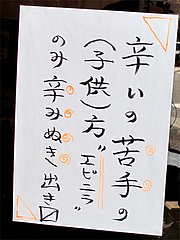 辛いの苦手の
(子供)方"エビニラ"
のみ辛みぬき出き〼